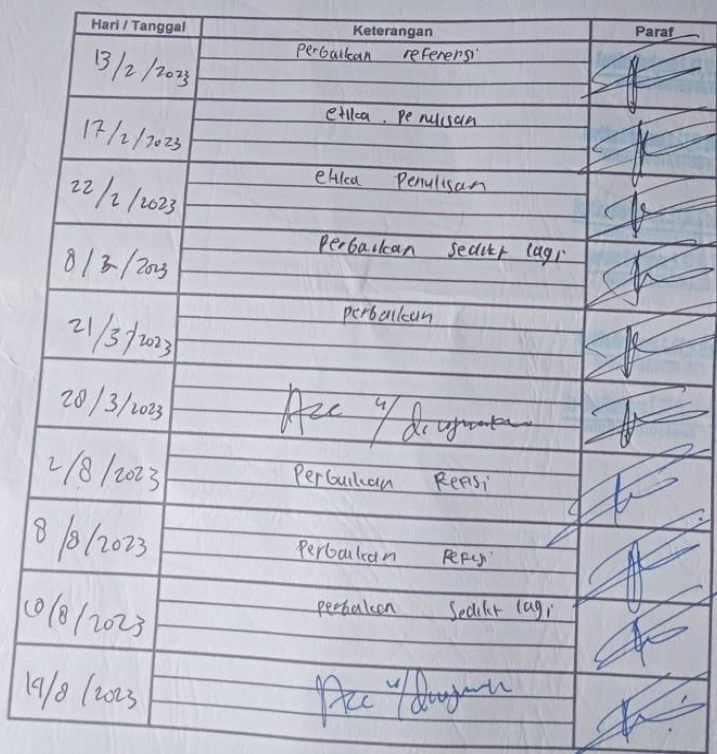 Hari / Tanggal Keterangan Paraf
13/2/2023 Perbaikan referensi
17/2/2023 etika Penulisan
22/2/2023 etika Penulisan
8/3/2023 Perbaikan sedikit lagi
21/3/2023 perbaikan
28/3/2023 Acc u/
2/8/2023 Perbaikan Revisi
8/8/2023 Perbaikan Revisi
10/8/2023 perbaikan sedikit lagi
14/8/2023 Acc u/